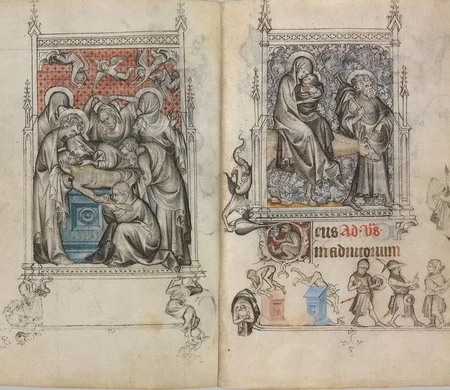 Deus Ad Vs.
in adiutorium